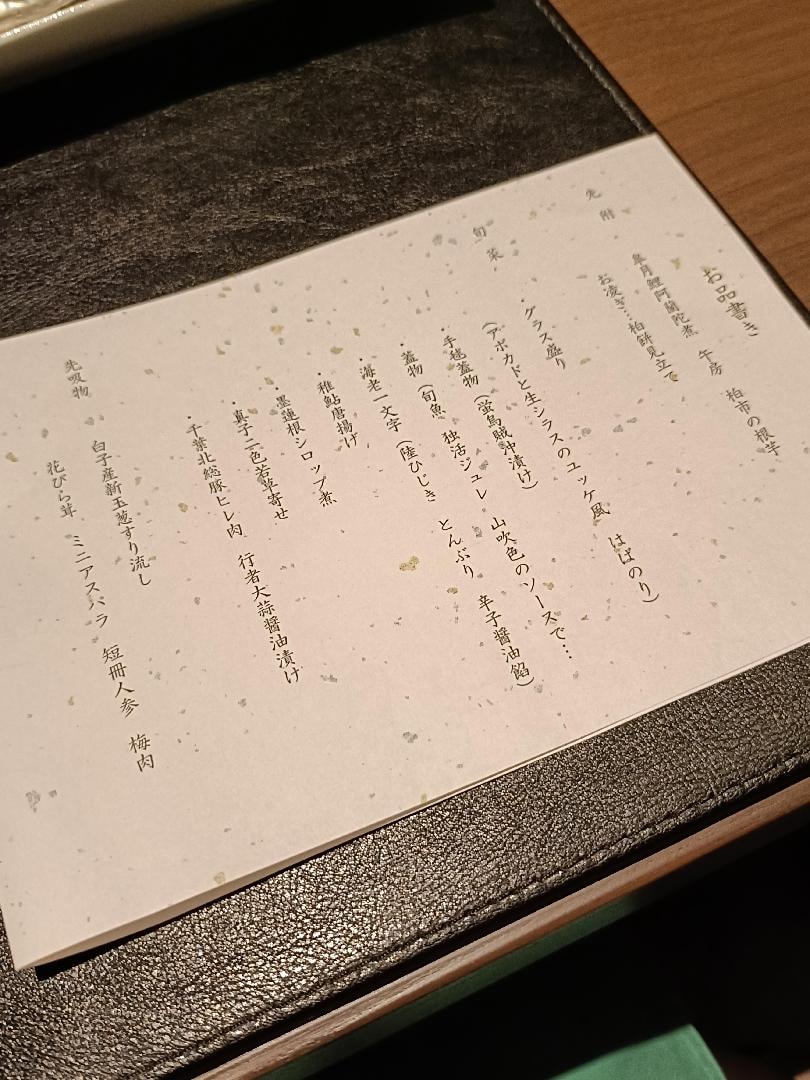 お品書き
先附
皐月鯉阿蘭陀煮　午房　柏市の根芋
お凌ぎ…柏餅見立て
旬菜
・グラス盛り
（アボカドと生シラスのユッケ風　はばのり）
・手毬蓋物（蛍烏賊沖漬け）　山吹色のソースで…
・蓋物（旬魚　独活ジュレ
・海老一文字（陸ひじき　とんぶり　辛子醤油餡）
・稚鮎唐揚げ
・墨蓮根シロップ煮
・真子二色若草寄せ
・千葉北総豚ヒレ肉　行者大蒜醤油漬け
先吸物
白子産新玉葱すり流し
花びら茸　ミニアスパラ　短冊人参　梅肉